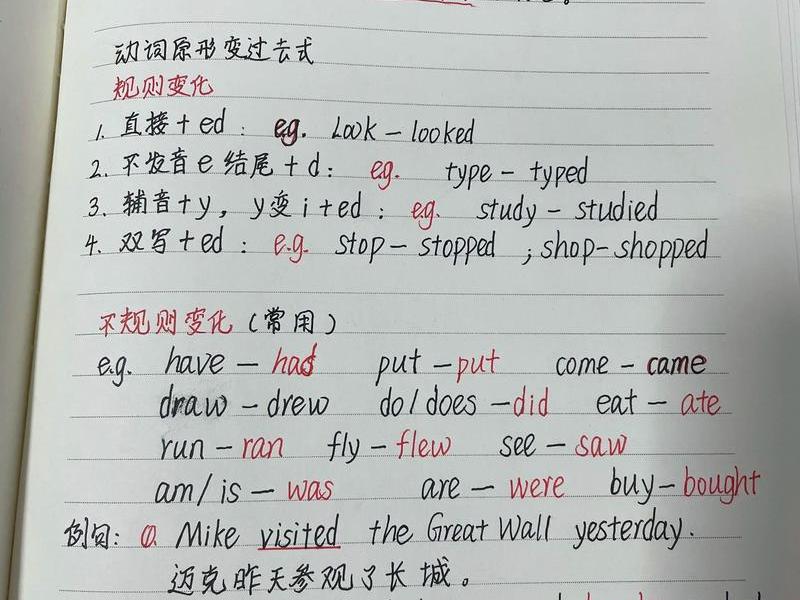 动词原形变过去式
规则变化
1. 直接+ed: eg. Look - looked
2. 不发音e结尾+d: eg. type - typed
3. 辅音+y, y变i+ed: eg. study - studied
4. 双写+ed: e.g. stop - stopped ; shop - shopped
不规则变化(常用)
e.g. have - had put - put come - came
draw - drew do/does - did eat - ate
run - ran fly - flew see - saw
am/is - was are - were buy - bought
例句: ①. Mike visited the Great Wall yesterday.
迈克昨天参观了长城。